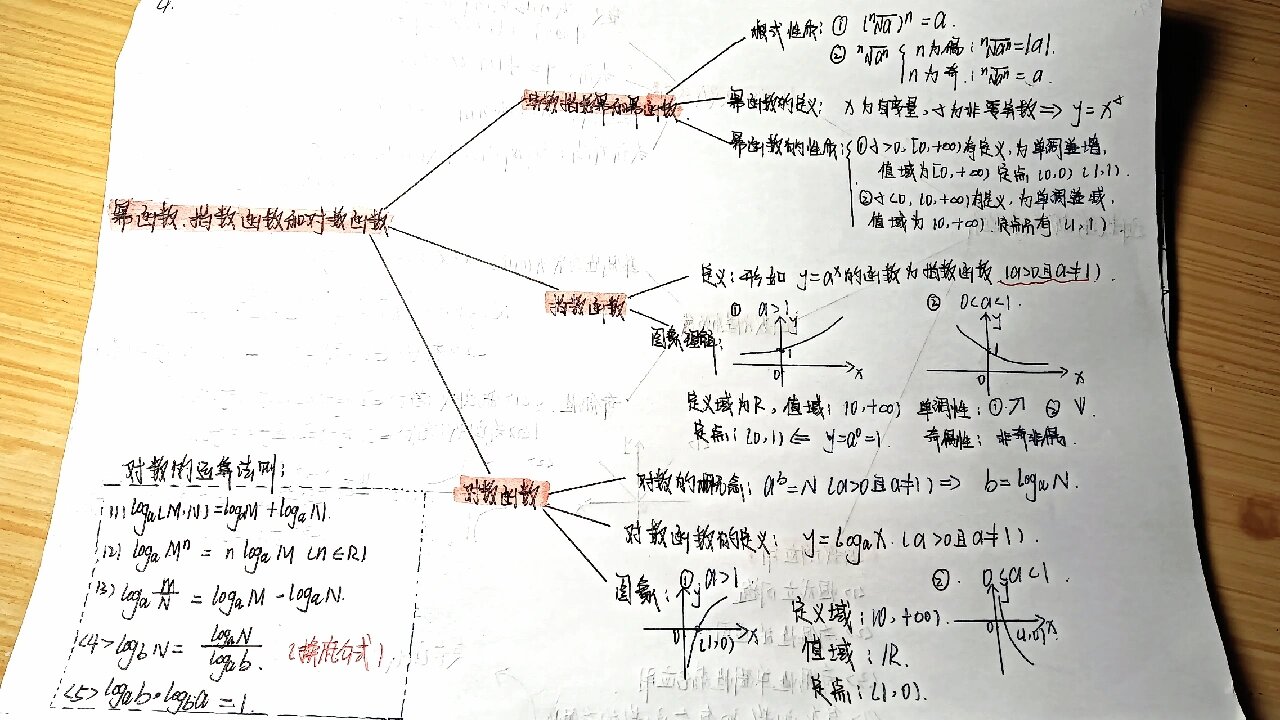 4.
幂函数.指数函数和对数函数
实数指数幂和幂函数
根式性质：① (ⁿ√a)ⁿ = a.
② ⁿ√aⁿ { n为偶：ⁿ√aⁿ = |a|.
n为奇：ⁿ√aⁿ = a.
幂函数的定义：x为自变量，α为非零常数 ⟹ y = x^α
幂函数的性质：{ ① α>0, [0,+∞)有定义，为单调递增，
值域为[0,+∞) 定点 (0,0) (1,1).
② α<0, (0,+∞)有定义，为单调递减，
值域为(0,+∞) 定点有 (1,1).
指数函数
定义：形如 y=aˣ的函数为指数函数 (a>0且a≠1).
图象
① a>1
y
1
0
x
② 0<a<1.
y
1
0
x
定义域为R，值域：(0,+∞) 单调性：① ↗ ② ↓.
定点：(0,1) ⟸ y=a⁰=1. 奇偶性：非奇非偶.
对数函数
对数的概念：aᵇ=N (a>0且a≠1) ⟹ b=logₐN.
对数函数的定义：y=logₐx. (a>0且a≠1).
图象：
① a>1
y
0
(1,0)
x
定义域：(0,+∞).
值域：R.
定点：(1,0).
② 0<a<1.
y
0
(1,0)
x
对数的运算法则：
(1) logₐ(M·N)=logₐM+logₐN.
(2) logₐMⁿ = n logₐM (n∈R)
(3) logₐ M/N = logₐM - logₐN.
<4> log_b N = logₐN / logₐb. (换底公式)
<5> logₐb·log_b a = 1.